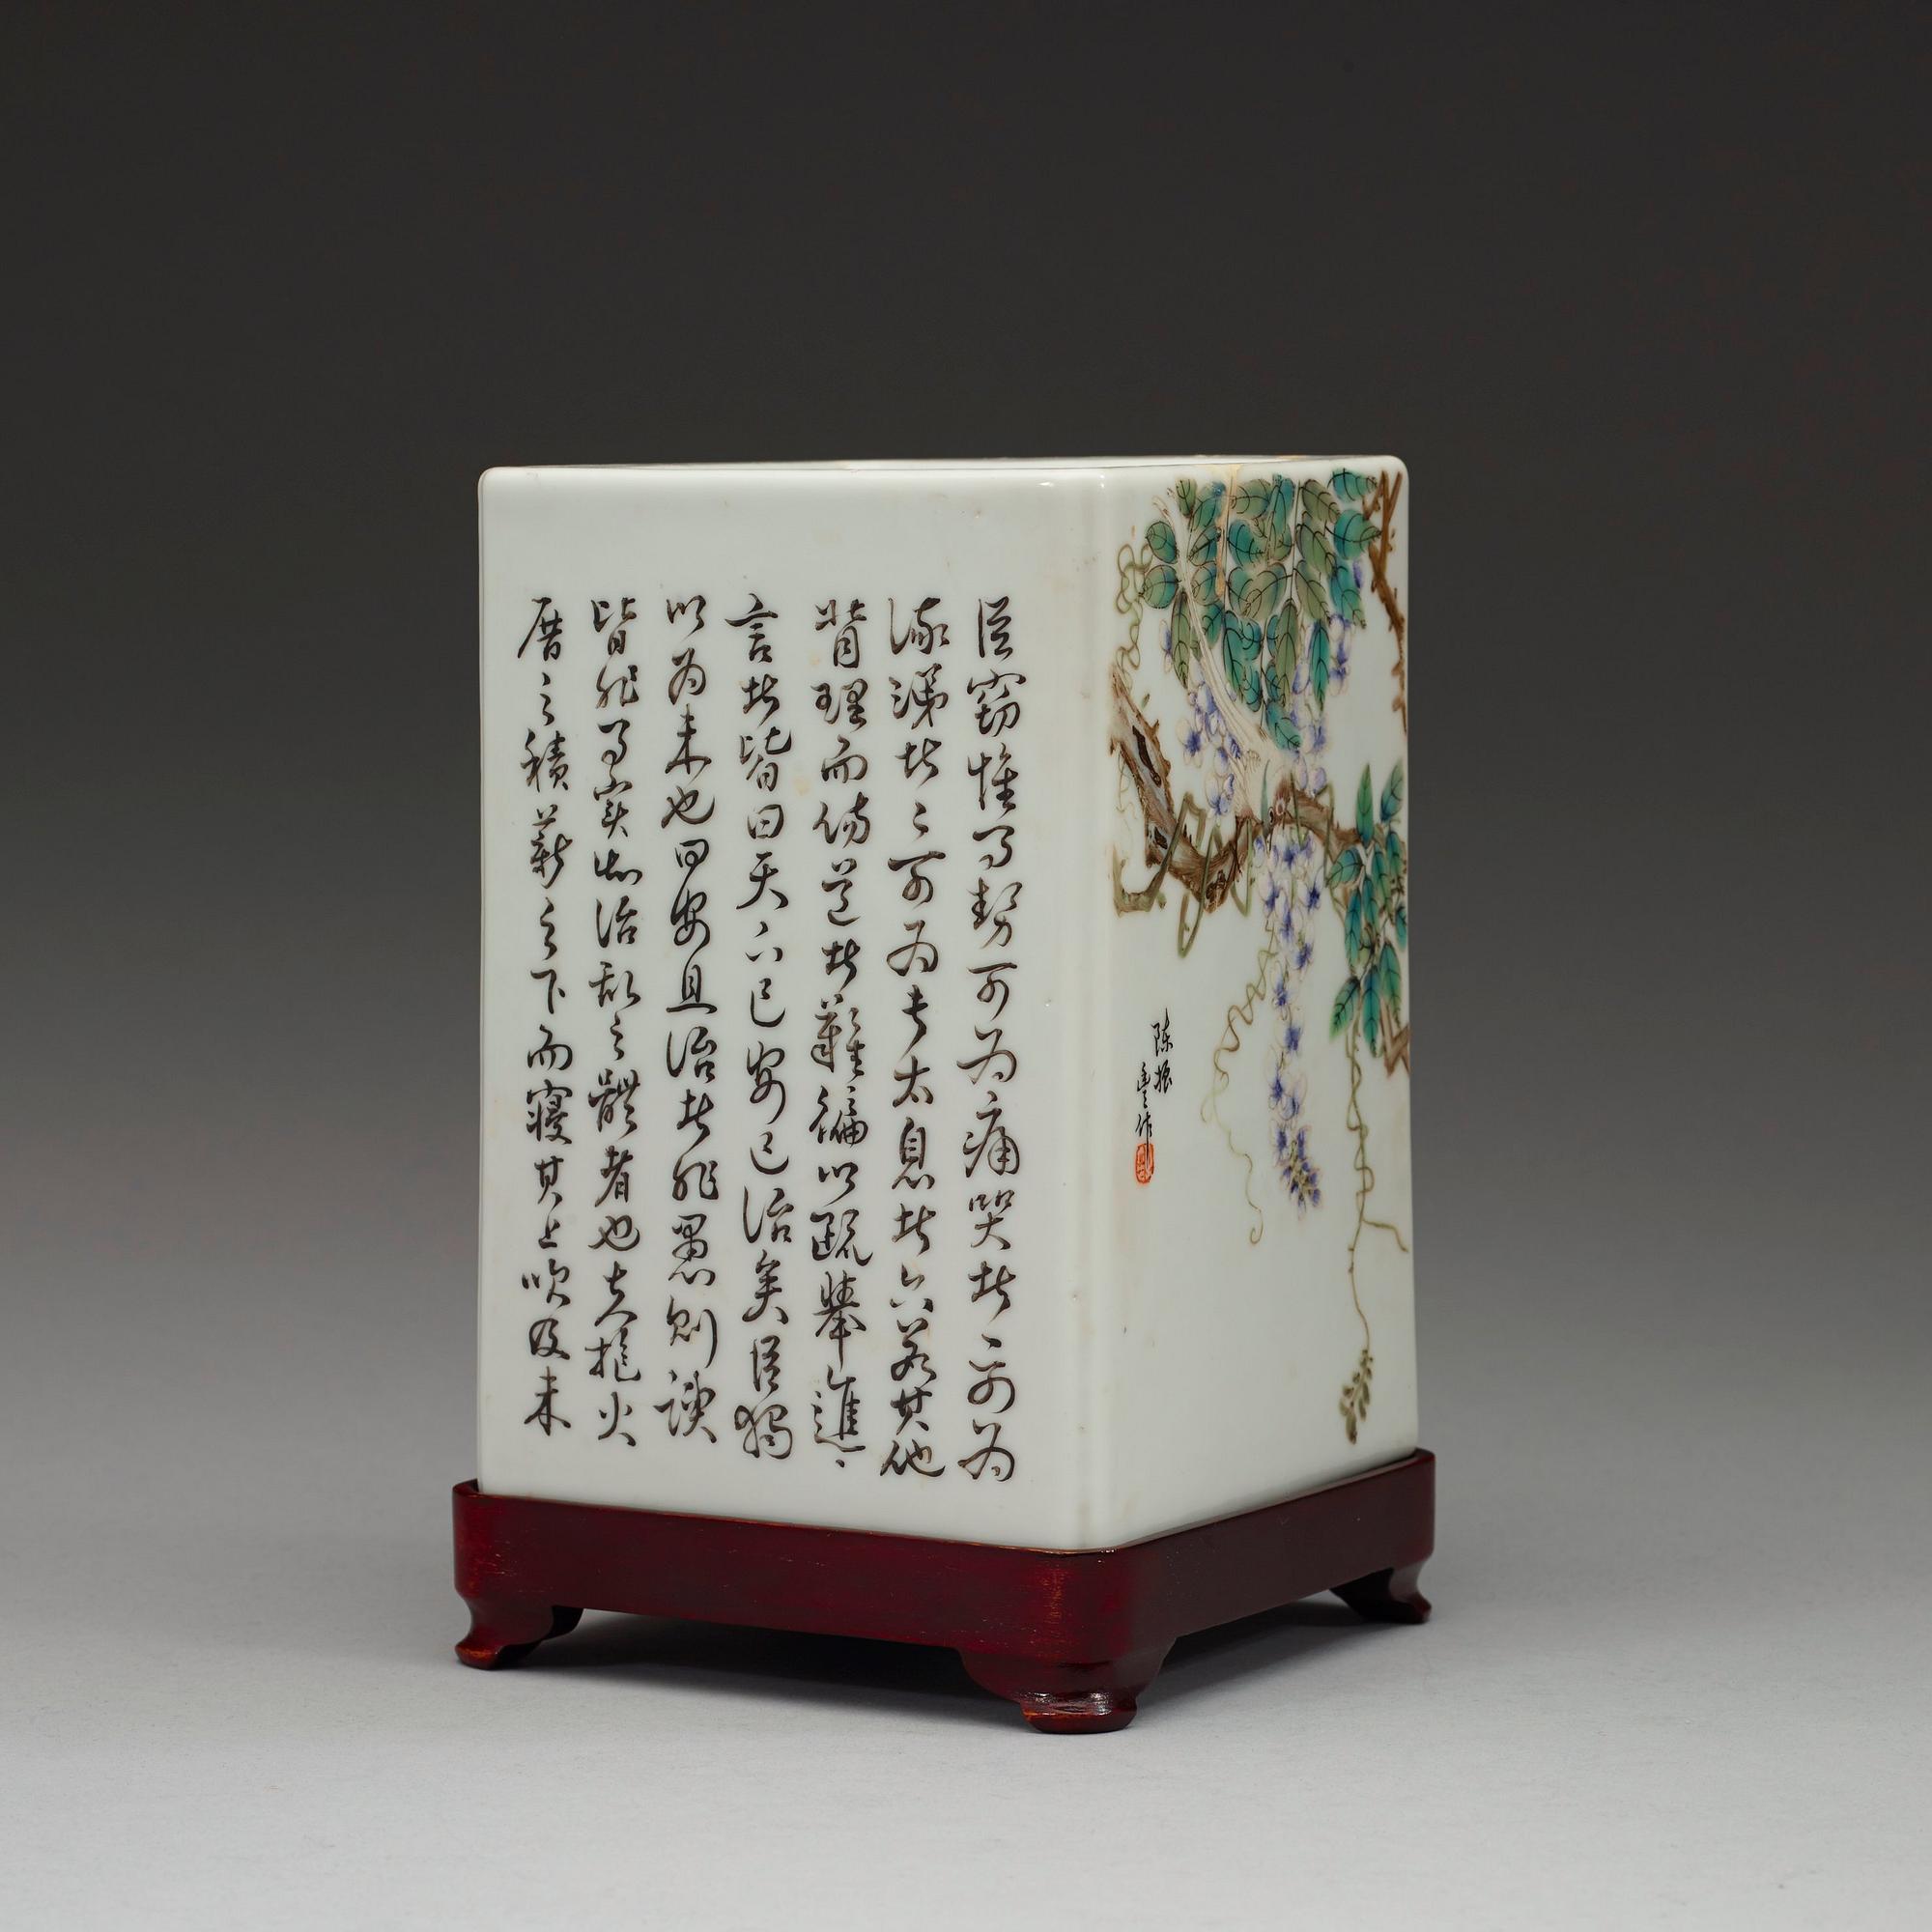 臣竊惟事勢可為痛哭者一可為
流涕者二可為長太息者六若其他
背理而傷道者難徧以疏舉進
言者皆曰天下已安已治矣臣獨
以為未也曰安且治者非愚則諛
皆非事實知治乱之體者也夫抱火
厝之積薪之下而寢其上吹及未
陳振
作